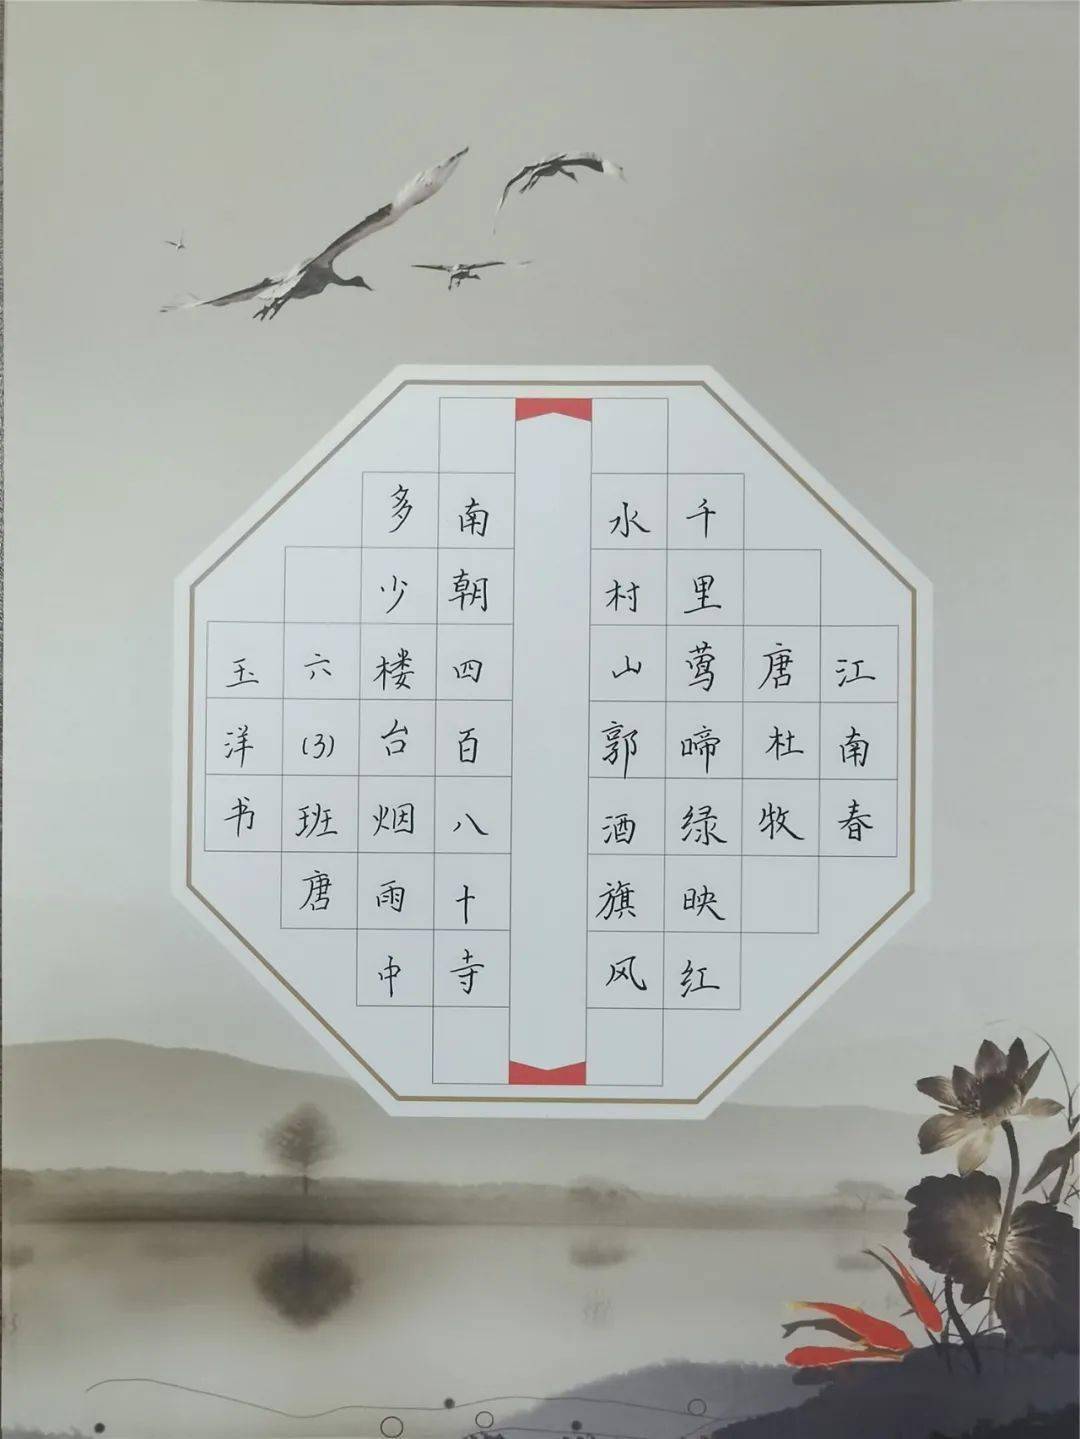 江南春
唐杜牧
千里莺啼绿映红
水村山郭酒旗风
南朝四百八十寺
多少楼台烟雨中
六(3)班唐
玉洋书